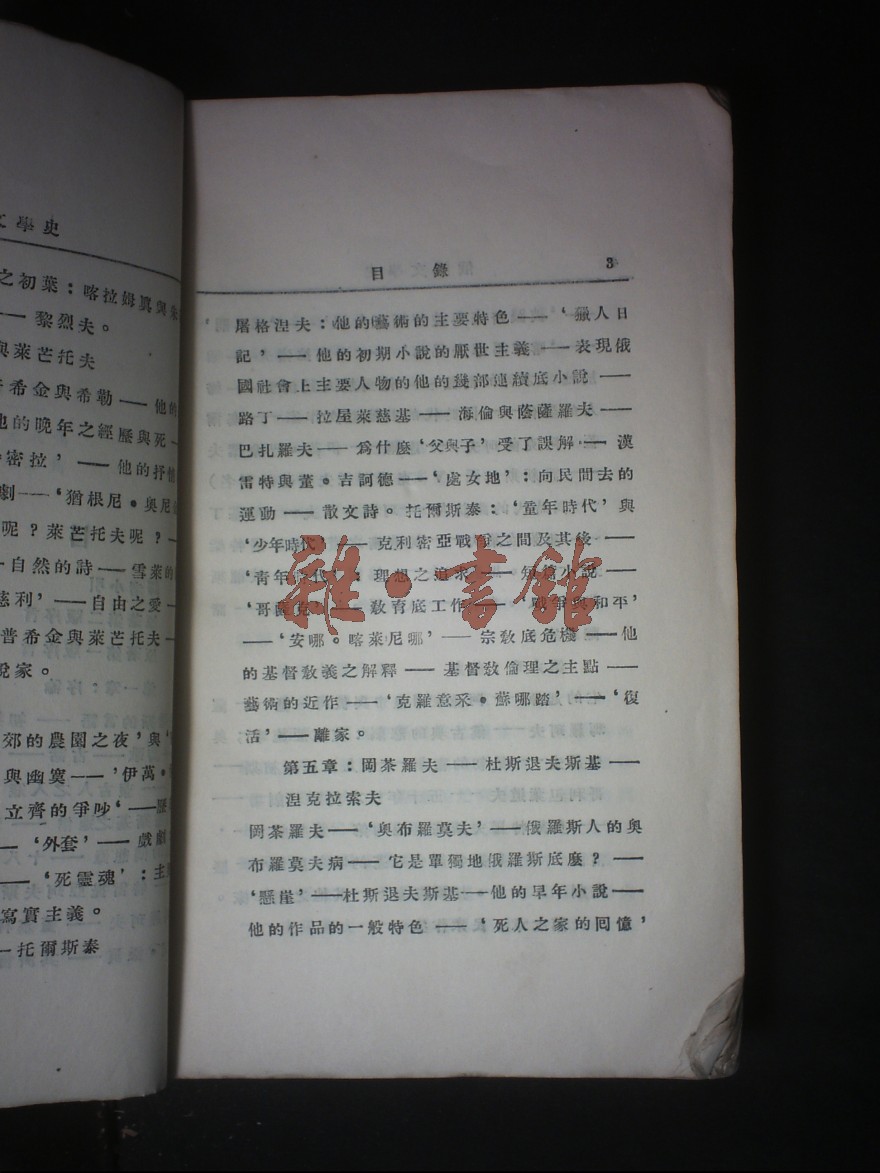 文學史
之初葉：喀拉姆真與朱
── 黎烈夫。
與萊芒托夫
普希金與希勒 ── 他的
他的晚年之經歷與死 ─
密拉’ ── 他的抒情
劇 ──‘猶根尼。奧尼
呢？萊芒托夫呢？─
自然的詩 ── 雪萊的
慈利’── 自由之愛 ─
普希金與萊芒托夫 ─
說家。
郊的農園之夜’與‘
與幽寞 ──‘伊萬。
立齊的爭吵‘ ──
── ‘外套’ ── 戲劇
── ‘死靈魂’：主
寫實主義。
─ 托爾斯泰
目錄 3
屠格涅夫：他的藝術的主要特色 ──‘獵人日
記’ ── 他的初期小說的厭世主義 ── 表現俄
國社會上主要人物的他的幾部連續底小說 ──
路丁 ── 拉屋萊慈基 ── 海倫與蔭薩羅夫 ──
巴扎羅夫 ── 爲什麼‘父與子’受了誤解 ─ 漢
雷特與董。吉訶德 ──‘處女地’：向民間去的
運動 ── 散文詩。托爾斯泰：‘童年時代’與
‘少年時代’ ── 克利密亞戰爭之間及其後 ──
‘青年時代’：理想之追求 ── 短篇小說 ──
‘哥薩克’ ── 教育底工作 ──‘戰爭與和平’
──‘安哪。喀萊尼哪’── 宗教底危機 ── 他
的基督教義之解釋 ── 基督教倫理之主點 ──
藝術的近作 ──‘克羅意采。蘇哪踏’ ──‘復
活’── 離家。
第五章：岡茶羅夫 ── 杜斯退夫斯基 ──
涅克拉索夫
岡茶羅夫 ──‘奧布羅莫夫’── 俄羅斯人的奧
布羅莫夫病 ── 它是單獨地俄羅斯底麼？ ──
‘懸崖’ ── 杜斯退夫斯基 ─ 他的早年小說 ──
他的作品的一般特色 ──‘死人之家的囘憶’
雜·書館